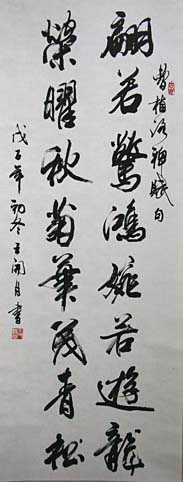 曹植洛神賦句
翩若驚鴻婉若遊龍
榮曜秋菊華茂青松
戊子年初冬王開月書